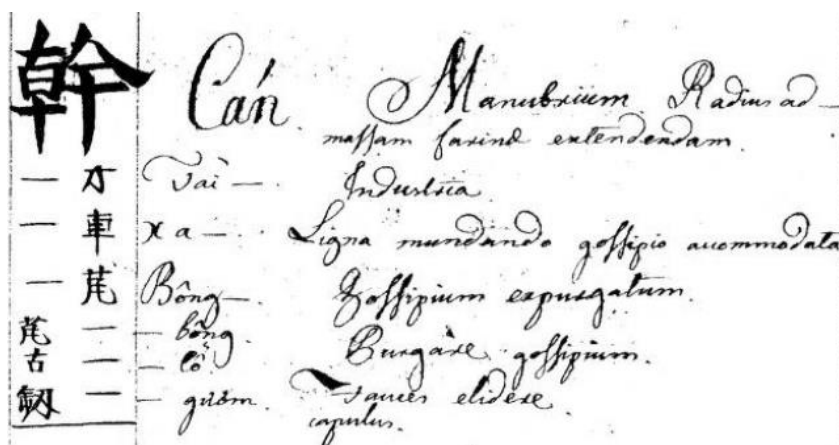 幹 Cán. Manubrium. Radius ad
massam farinæ extendendam.
才 — Tài — Industria
車 — xa — Ligna mundando gossipio accommodata
— Bông — Gossipium expurgatum.
— — bông. Purgare gossipium.
— 古 — cổ. Fauces elidere
— 釼 — gươm. capulus.